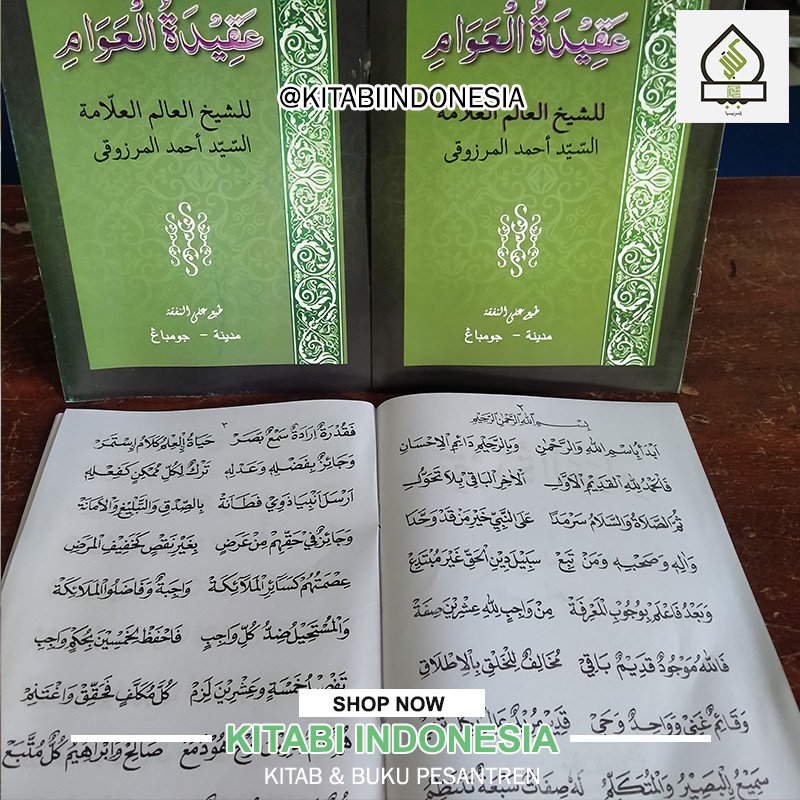 عَقِيْدَةُ الْعَوَامِ
للشيخ العالم العلّامة
السّيّد أحمد المرزوقى
طبع على النفقة
مدينة - جومباڠ
عَقِيْدَةُ الْعَوَامِ
@KITABIINDONESIA
للشيخ العالم العلّامة
السّيّد أحمد المرزوقى
طبع على النفقة
مدينة - جومباڠ
٢
بِسْمِ اللهِ الرَّحْمٰنِ الرَّحِيْمِ
اَبْدَأُ بِاسْمِ اللهِ وَالرَّحْمٰنِ وَبِالرَّحِيْمِ دَائِمِ الْاِحْسَانِ
فَالْحَمْدُ لِلّٰهِ الْقَدِيْمِ الْاَوَّلِ اَلْاٰخِرِ الْبَاقِيْ بِلَا تَحَوُّلِ
ثُمَّ الصَّلَاةُ وَالسَّلَامُ سَرْمَدَا عَلَى النَّبِيِّ خَيْرِ مَنْ قَدْ وَحَّدَا
وَاٰلِهِ وَصَحْبِهِ وَمَنْ تَبِعْ سَبِيْلَ دِيْنِ الْحَقِّ غَيْرَ مُبْتَدِعْ
وَبَعْدُ فَاعْلَمْ بِوُجُوْبِ الْمَعْرِفَةْ مِنْ وَاجِبٍ لِلّٰهِ عِشْرِيْنَ صِفَةْ
فَاللهُ مَوْجُوْدٌ قَدِيْمٌ بَاقِيْ مُخَالِفٌ لِلْخَلْقِ بِالْاِطْلَاقِ
وَقَائِمٌ غَنِيْ وَوَاحِدٌ وَحَيّ
سَمِيْعٌ الْبَصِيْرُ وَالْمُتَكَلِّمُ لَهُ صِفَاتٌ سَبْعَةٌ تَنْتَظِمُ
٣
فَقُدْرَةٌ اِرَادَةٌ سَمْعٌ بَصَرْ حَيَاةٌ الْعِلْمُ كَلَامٌ اِسْتَمَرْ
وَجَائِزٌ بِفَضْلِهِ وَعَدْلِهِ تَرْكٌ لِكُلِّ مُمْكِنٍ كَفِعْلِهِ
اَرْسَلَ اَنْبِيَا ذَوِيْ فَطَانَةْ بِالصِّدْقِ وَالتَّبْلِيْغِ وَالْاَمَانَةْ
وَجَائِزٌ فِيْ حَقِّهِمْ مِنْ عَرَضِ بِغَيْرِ نَقْصٍ كَخَفِيْفِ الْمَرَضِ
عِصْمَتُهُمْ كَسَائِرِ الْمَلَائِكَةْ وَاجِبَةٌ وَفَاضَلُوا الْمَلَائِكَةْ
وَالْمُسْتَحِيْلُ ضِدُّ كُلِّ وَاجِبِ فَاحْفَظْ لِخَمْسِيْنَ بِحُكْمٍ وَاجِبِ
تَفْصِيْلُ خَمْسَةٍ وَعِشْرِيْنَ لَزِمْ كُلَّ مُكَلَّفٍ فَحَقِّقْ وَاغْتَنِمْ
هُوْدُ مَعْ صَالِحْ وَاِبْرَاهِيْمُ كُلٌّ مُتَّبَعْ
SHOP NOW
KITABI INDONESIA
KITAB & BUKU PESANTREN